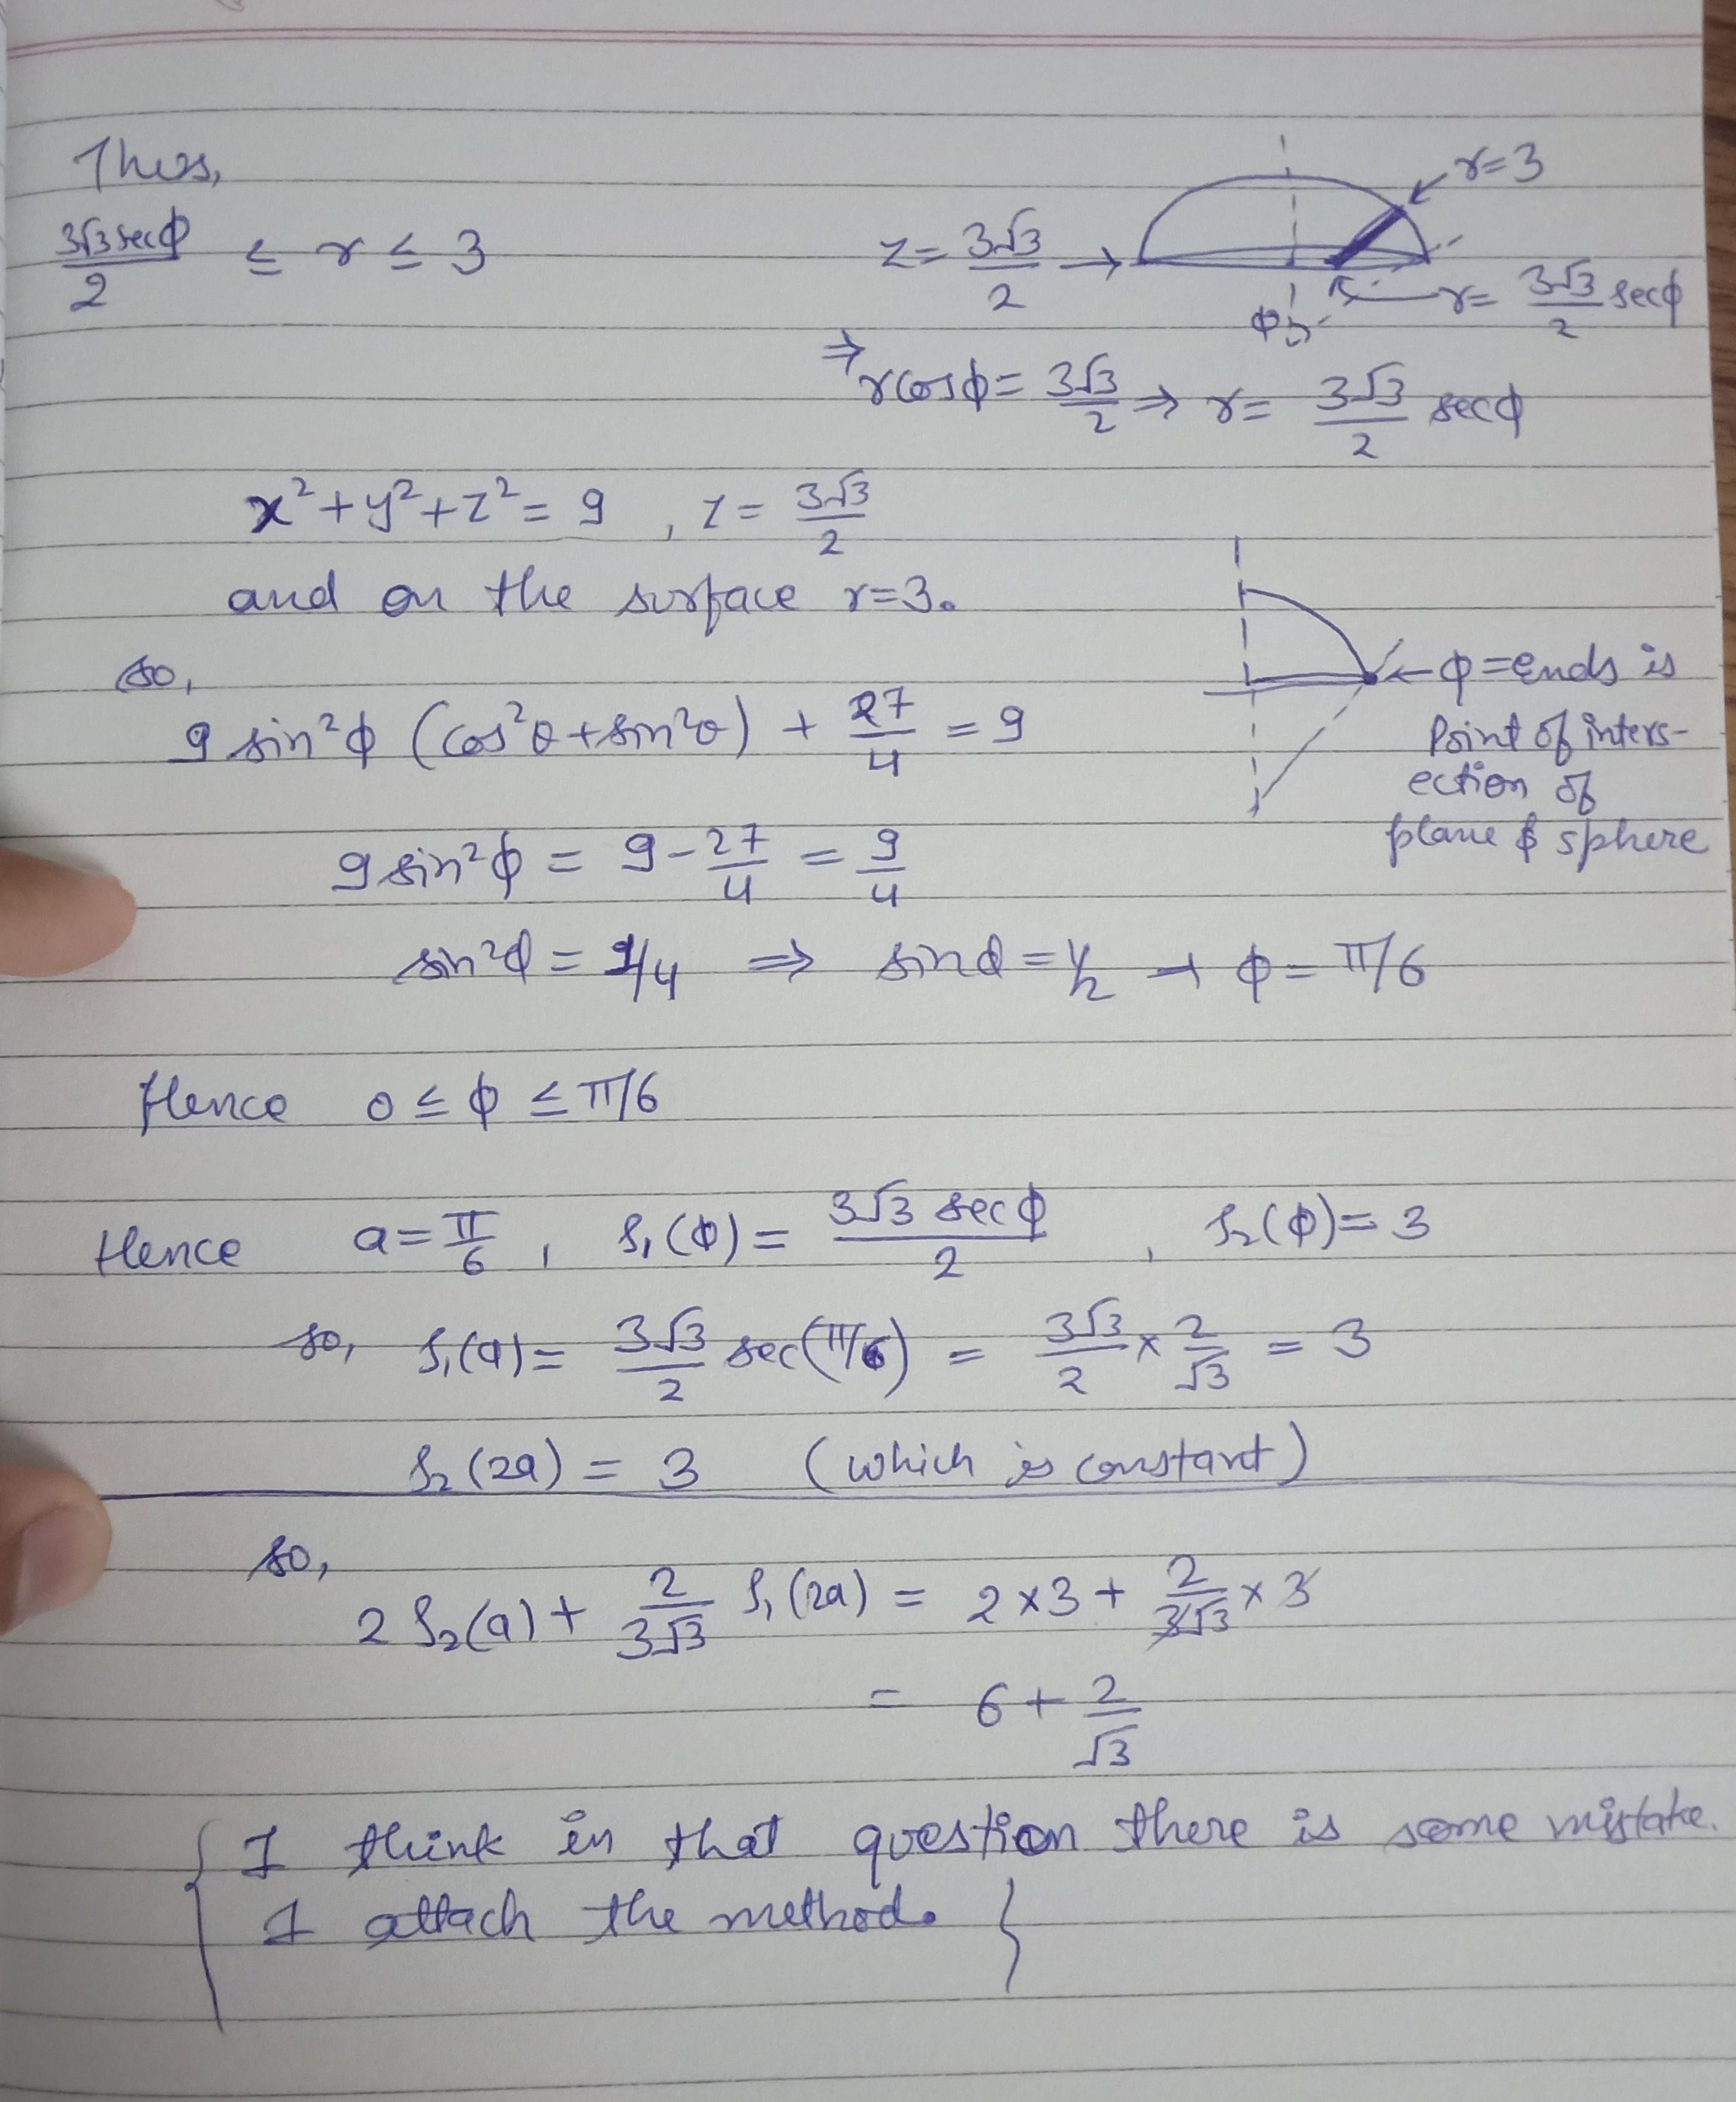 Thus,
3√3 secφ / 2 ≤ r ≤ 3
r=3
z= 3√3/2 →
r= 3√3/2 secφ
φ
⇒ rcosφ= 3√3/2 ⇒ r= 3√3/2 secφ
x²+y²+z²= 9 , z= 3√3/2
and on the surface r=3.
so,
9 sin²φ (cos²θ+sin²θ) + 27/4 = 9
← φ=ends is
Point of inters-
ection of
plane & sphere
9 sin²φ = 9-27/4 = 9/4
sin²φ = 1/4 ⇒ sinφ=1/2 → φ= π/6
Hence 0 ≤ φ ≤ π/6
Hence a=π/6 , f₁(φ)= 3√3 secφ / 2 , f₂(φ)= 3
so, f₁(a)= 3√3/2 sec(π/6) = 3√3/2 × 2/√3 = 3
f₂(2a) = 3 (which is constant)
so,
2 f₂(a)+ 2/3√3 f₁(2a) = 2×3+ 2/3√3 ×3
= 6+ 2/√3
{ I think in that question there is some mistake.
I attach the method. }